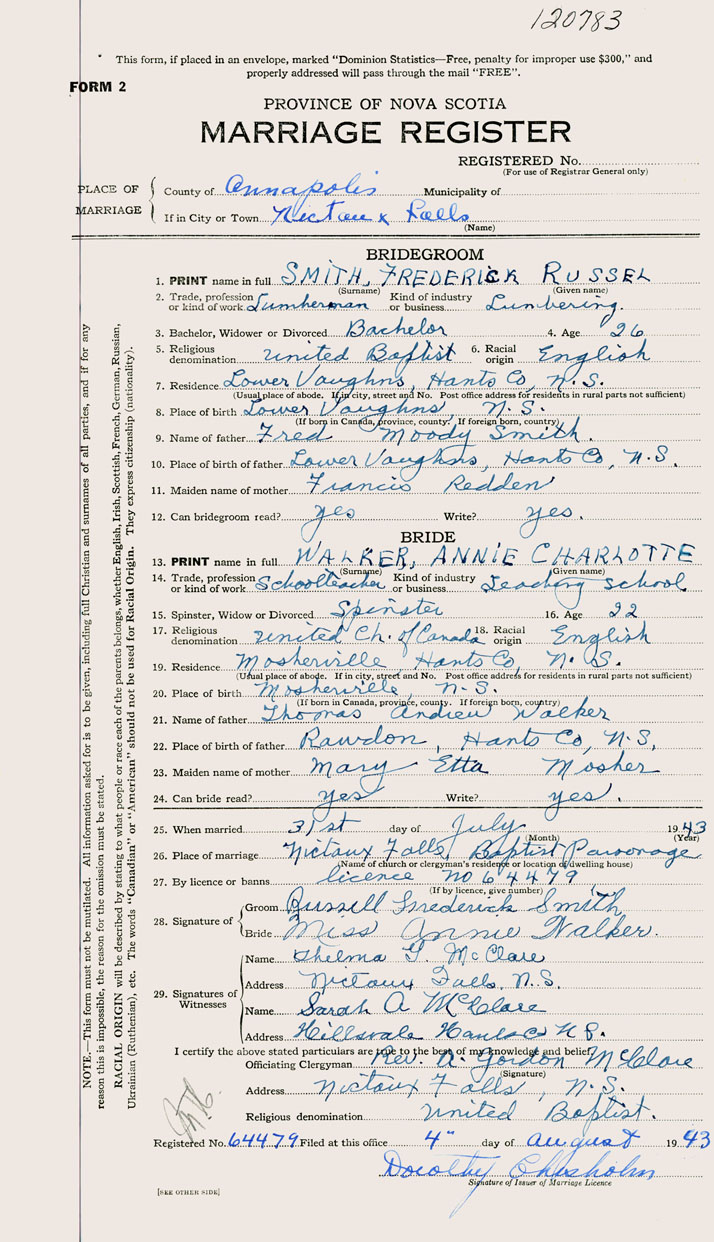 120783
* This form, if placed in an envelope, marked "Dominion Statistics—Free, penalty for improper use $300," and
properly addressed will pass through the mail "FREE".
FORM 2
PROVINCE OF NOVA SCOTIA
MARRIAGE REGISTER
REGISTERED No.
(For use of Registrar General only)
PLACE OF MARRIAGE
County of Annapolis Municipality of
If in City or Town Nictaux Falls
(Name)
BRIDEGROOM
1. PRINT name in full SMITH, FREDERICK RUSSEL
(Surname) (Given name)
2. Trade, profession or kind of work Lumberman Kind of industry or business Lumbering.
3. Bachelor, Widower or Divorced Bachelor 4. Age 26
5. Religious denomination United Baptist 6. Racial origin English
7. Residence Lower Vaughns, Hants Co, N.S.
(Usual place of abode. If in city, street and No. Post office address for residents in rural parts not sufficient)
8. Place of birth Lower Vaughns, N.S.
(If born in Canada, province, county. If foreign born, country)
9. Name of father Fred Moody Smith.
10. Place of birth of father Lower Vaughns, Hants Co, N.S.
11. Maiden name of mother Francis Redden
12. Can bridegroom read? yes Write? yes.
BRIDE
13. PRINT name in full WALKER, ANNIE CHARLOTTE
(Surname) (Given name)
14. Trade, profession or kind of work Schoolteacher Kind of industry or business Teaching school
15. Spinster, Widow or Divorced Spinster 16. Age 22
17. Religious denomination United Ch. of Canada 18. Racial origin English
19. Residence Mosherville, Hants Co, N.S.
(Usual place of abode. If in city, street and No. Post office address for residents in rural parts not sufficient)
20. Place of birth Mosherville, N.S.
(If born in Canada, province, county. If foreign born, country)
21. Name of father Thomas Andrew Walker
22. Place of birth of father Rawdon, Hants Co, N.S,
23. Maiden name of mother Mary Etta Mosher
24. Can bride read? yes Write? yes.
25. When married 31st day of July 1943
(Month) (Year)
26. Place of marriage Nictaux Falls, Baptist Parsonage
(Name of church or clergyman's residence or location of dwelling house)
27. By licence or banns licence no 64479
(If by licence, give number)
28. Signature of
Groom Russell Frederick Smith
Bride Miss Annie Walker.
29. Signatures of Witnesses
Name Thelma G. McClare
Address Nictaux Falls, N.S.
Name Sarah A McClare
Address Hillsvale Hants Co N S.
I certify the above stated particulars are true to the best of my knowledge and belief.
Officiating Clergyman Rev. A. Gordon McClare
(Signature)
Address Nictaux Falls, N.S.
Religious denomination United Baptist.
Registered No. 64479 Filed at this office 4" day of august 1943
Dorothy Chisholm
Signature of Issuer of Marriage Licence
[SEE OTHER SIDE]
NOTE.—This form must not be mutilated. All information asked for is to be given, including full Christian and surnames of all parties, and if for any
reason this is impossible, the reason for the omission must be stated.
RACIAL ORIGIN will be described by stating to what people or race each of the parents belongs, whether English, Irish, Scottish, French, German, Russian,
Ukrainian (Ruthenian), etc. The words "Canadian" or "American" should not be used for Racial Origin. They express citizenship (nationality).